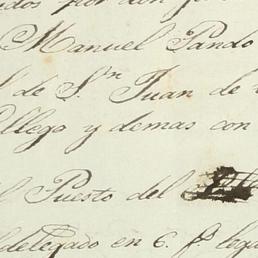 por don
Manuel Pando
de S.n Juan de
llego y demas con
Puesto del
delegado en 6. f.s